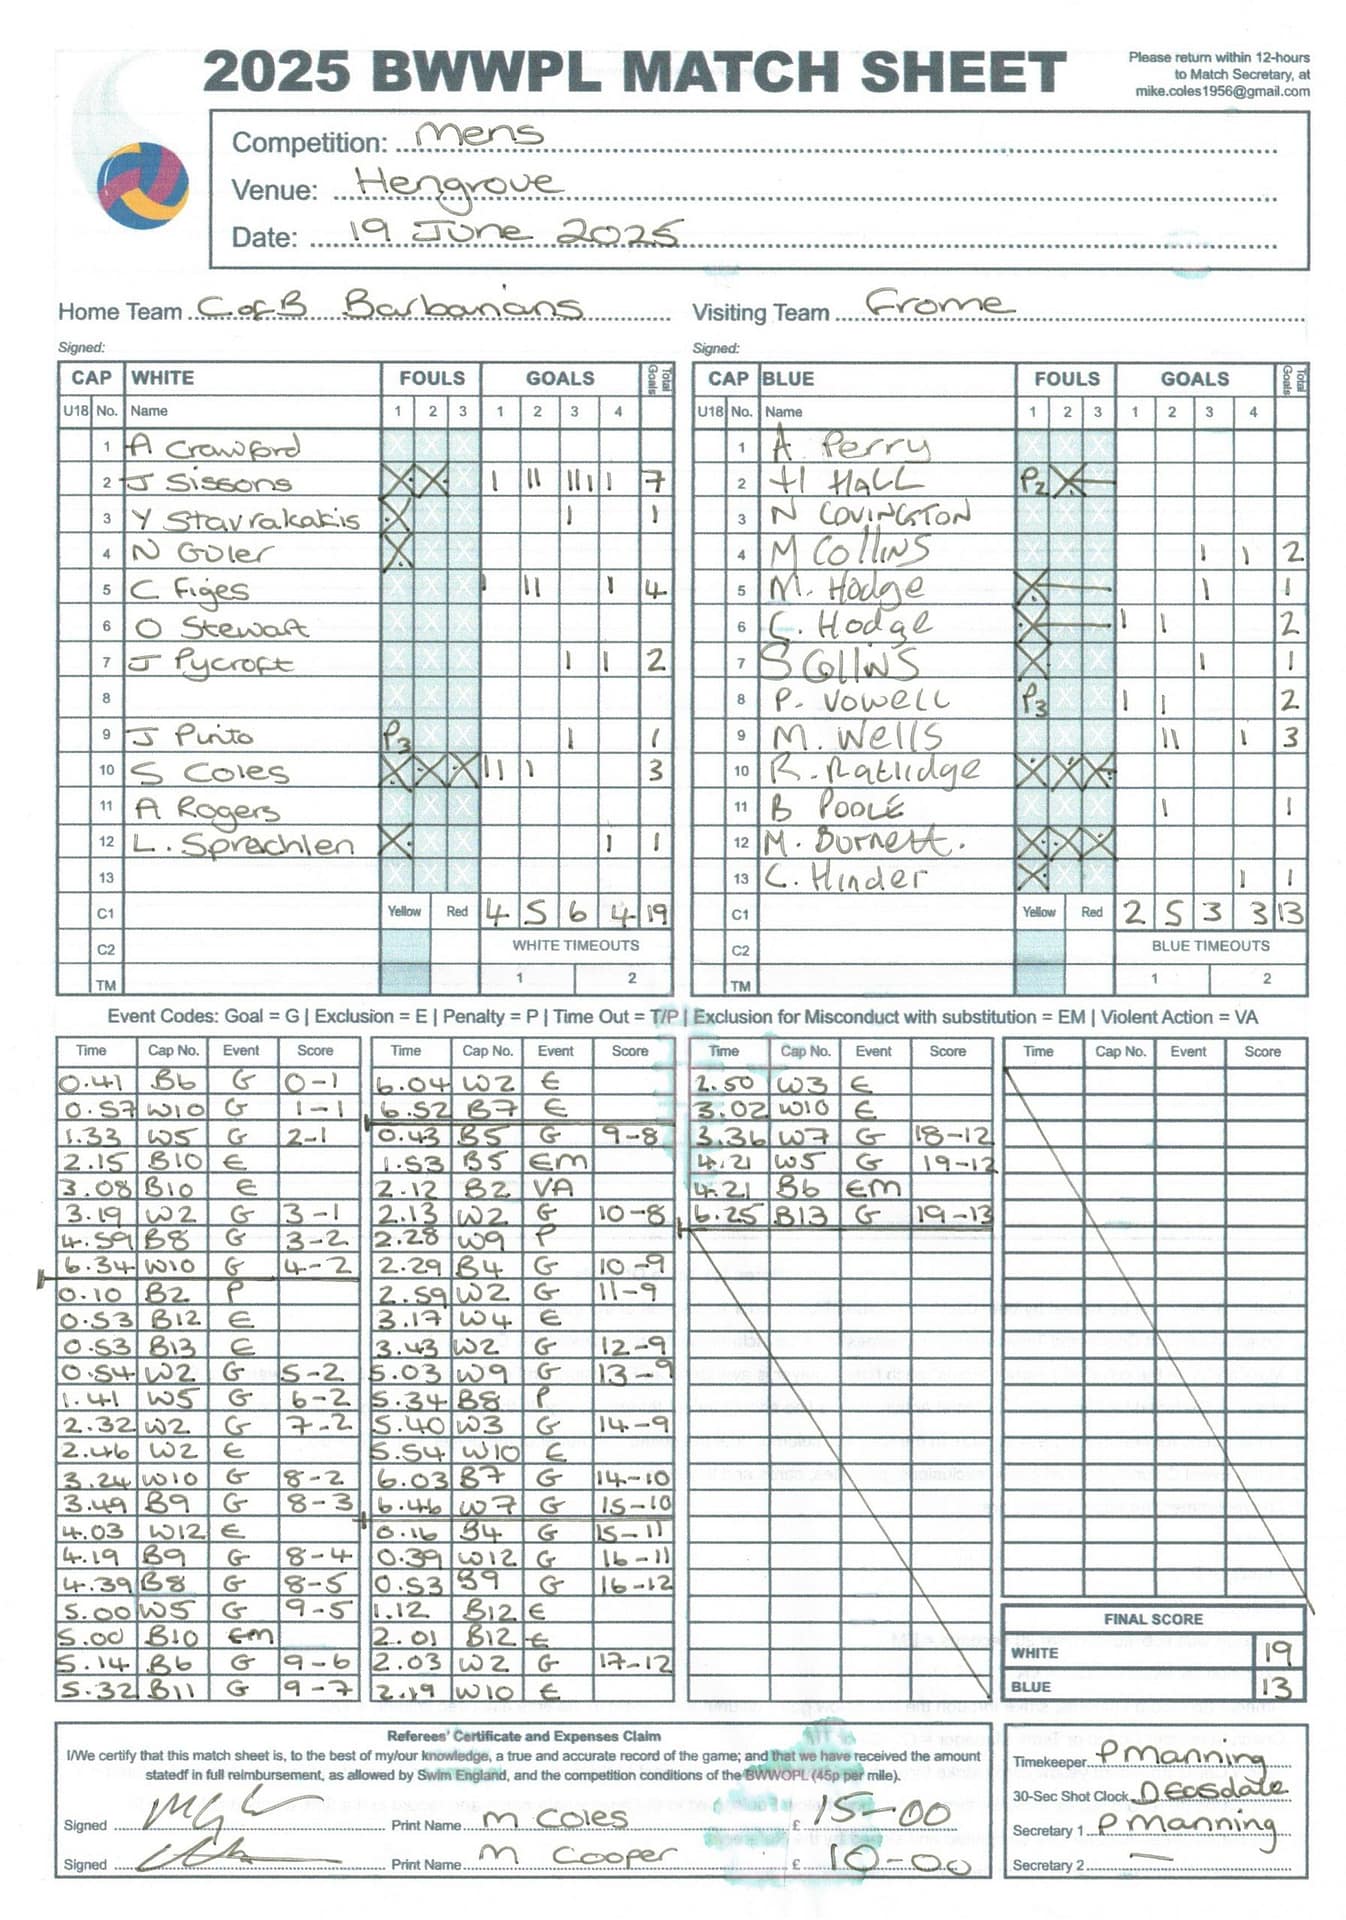 2025 BWWPL MATCH SHEET
Please return within 12-hours
to Match Secretary, at
mike.coles1956@gmail.com
Competition: Mens
Venue: Hengrove
Date: 19 June 2025
Home Team C of B Barbarians Visiting Team Frome
Signed: Signed:
CAP WHITE FOULS GOALS Total Goals
U18 No. Name 1 2 3 1 2 3 4
1 A Crawford
2 J Sissons X X 1 11 1111 1 7
3 Y Stavrakakis X 1 1
4 N Guler X
5 C Figes 1 11 1 4
6 O Stewart
7 J Pycroft 1 1 2
8
9 J Pinto P3 1 1
10 S Coles X X X 11 1 3
11 A Rogers
12 L. Sprachlen X 1 1
13
C1 Yellow Red 4 5 6 4 19
C2 WHITE TIMEOUTS
TM 1 2
CAP BLUE FOULS GOALS Total Goals
U18 No. Name 1 2 3 1 2 3 4
1 A. Perry
2 H HALL P2 X
3 N COVINGTON
4 M COllINS 1 1 2
5 M. Hodge X 1 1
6 C. Hodge X 1 1 2
7 S COllINS X 1 1
8 P. Vowell P3 1 1 2
9 M. Wells 11 1 3
10 R. Ratlidge X X X
11 B POOLE 1 1
12 M. Burnett. X X X
13 C. Hinder X 1 1
C1 Yellow Red 2 5 3 3 13
C2 BLUE TIMEOUTS
TM 1 2
Event Codes: Goal = G | Exclusion = E | Penalty = P | Time Out = T/P | Exclusion for Misconduct with substitution = EM | Violent Action = VA
Time Cap No. Event Score
0.41 B6 G 0-1
0.57 W10 G 1-1
1.33 W5 G 2-1
2.15 B10 E
3.08 B10 E
3.19 W2 G 3-1
4.59 B8 G 3-2
6.34 W10 G 4-2
0.10 B2 P
0.53 B12 E
0.53 B13 E
0.54 W2 G 5-2
1.41 W5 G 6-2
2.32 W2 G 7-2
2.46 W2 E
3.24 W10 G 8-2
3.49 B9 G 8-3
4.03 W12 E
4.19 B9 G 8-4
4.39 B8 G 8-5
5.00 W5 G 9-5
5.00 B10 EM
5.14 B6 G 9-6
5.32 B11 G 9-7
Time Cap No. Event Score
6.04 W2 E
6.52 B7 E
0.43 B5 G 9-8
1.53 B5 EM
2.12 B2 VA
2.13 W2 G 10-8
2.28 W9 P
2.29 B4 G 10-9
2.59 W2 G 11-9
3.17 W4 E
3.43 W2 G 12-9
5.03 W9 G 13-9
5.34 B8 P
5.40 W3 G 14-9
5.54 W10 E
6.03 B7 G 14-10
6.46 W7 G 15-10
0.16 B4 G 15-11
0.39 W12 G 16-11
0.53 B9 G 16-12
1.12 B12 E
2.01 B12 E
2.03 W2 G 17-12
2.19 W10 E
Time Cap No. Event Score
2.50 W3 E
3.02 W10 E
3.36 W7 G 18-12
4.21 W5 G 19-12
4.21 B6 EM
6.25 B13 G 19-13
Time Cap No. Event Score
FINAL SCORE
WHITE 19
BLUE 13
Referees' Certificate and Expenses Claim
I/We certify that this match sheet is, to the best of my/our knowledge, a true and accurate record of the game; and that we have received the amount
statedf in full reimbursement, as allowed by Swim England, and the competition conditions of the BWWOPL (45p per mile).
Signed Print Name M Coles £ 15-00
Signed Print Name M Cooper £ 10-00
Timekeeper P Manning
30-Sec Shot Clock D Easdale
Secretary 1 P Manning
Secretary 2 —